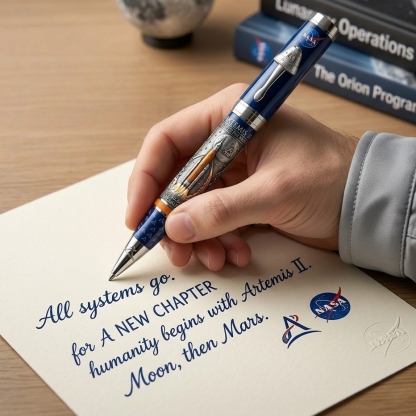 Operations
The Orion Progra
NASA
All systems go.
for A NEW CHAPTER
humanity begins with Artemis II.
Moon, then Mars.
NASA